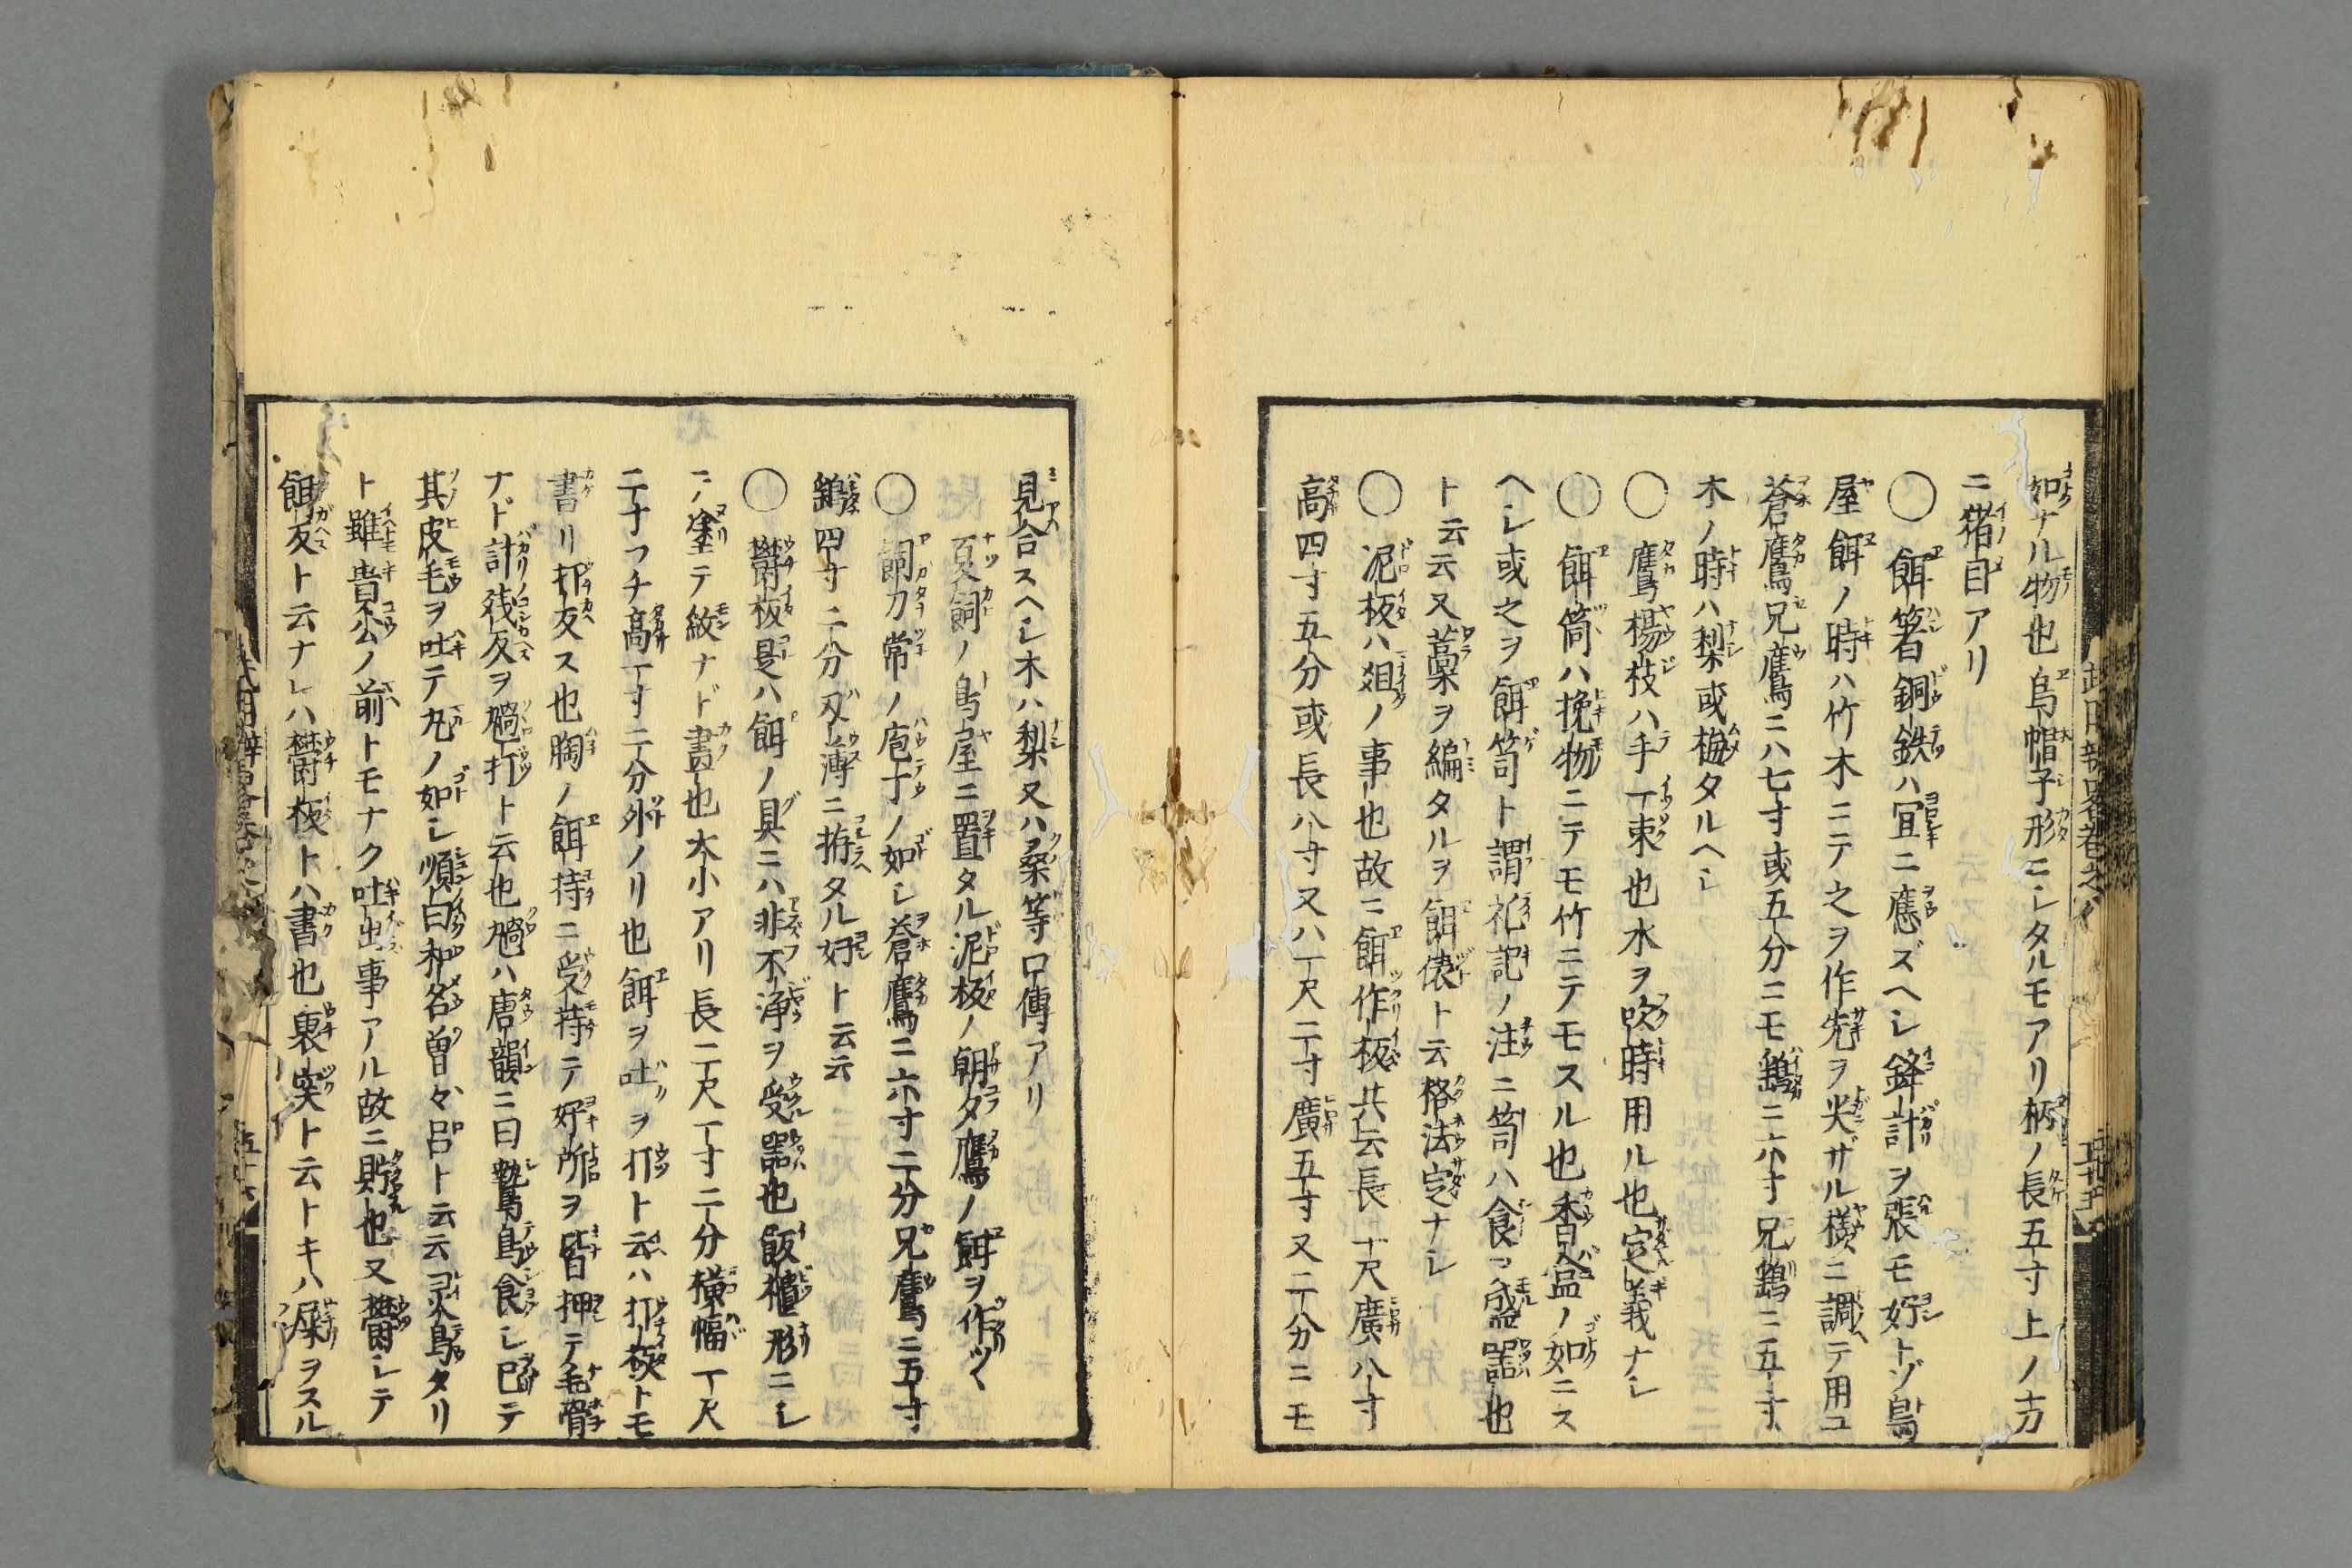 如ナル物也烏帽子形ニシタルモアリ柄ノ長五寸上ノ方
ニ猪目アリ
○餌箸銅鉄ハ冝ニ應ズヘシ鋒計ヲ張モ好トゾ鳥
屋餌ノ時ハ竹木ニテ之ヲ作先ヲ尖ザル様ニ調テ用ユ
蒼鷹兄鷹ニハ七寸或五分ニモ鷂ニ六寸兄鷂ニ五寸
木ノ時ハ梨或梅タルヘシ
○鷹楊枝ハ手一束也水ヲ吹時用ル也定義ナシ
○餌筒ハ挽物ニテモ竹ニテモスル也香合ノ如ニス
ヘシ或之ヲ餌笥ト謂礼記ノ注ニ笥ハ食ヲ盛噐也
ト云云又藁ヲ編タルヲ餌俵ト云格法定ナシ
○泥板ハ爼ノ事也故ニ餌作板共云長一尺廣八寸
高四寸五分或長八寸又ハ一尺二寸廣五寸又二分ニモ
見合スヘシ木ハ梨又ハ桑等口傳アリ
夏飼ノ鳥屋ニ置タル泥板ノ朝夕鷹ノ餌ヲ作ツく
○飼刀常ノ庖丁ノ如シ蒼鷹ニ六寸二分兄鷹ニ五寸
鷂四寸二分刃薄ニ拵タル好ト云云
○欎板是ハ餌ノ具ニハ非不浄ヲ受噐也飯櫃形ニシ
テ塗テ紋ナド畫也大小アリ長二尺一寸二分横幅一尺
二寸フチ高一寸二分外ノリ也餌ヲ吐ヲ打ト云ハ打板トモ
書リ打返ス也胸ノ餌持ニ受持テ好所ヲ皆押テ毛骨
ナド計残反ヲ𩲃打ト云也𩲃ハ唐韻ニ曰鷙鳥食シ已テ
其皮毛ヲ吐テ丸ノ如シ順曰和名曽々呂ト云云灵鳥タリ
ト雖貴公ノ前トモナク吐出事アル故ニ貯也又欎シテ
餌反ト云ナレハ欎板トハ書也裏突ト云トキハ屎ヲスル